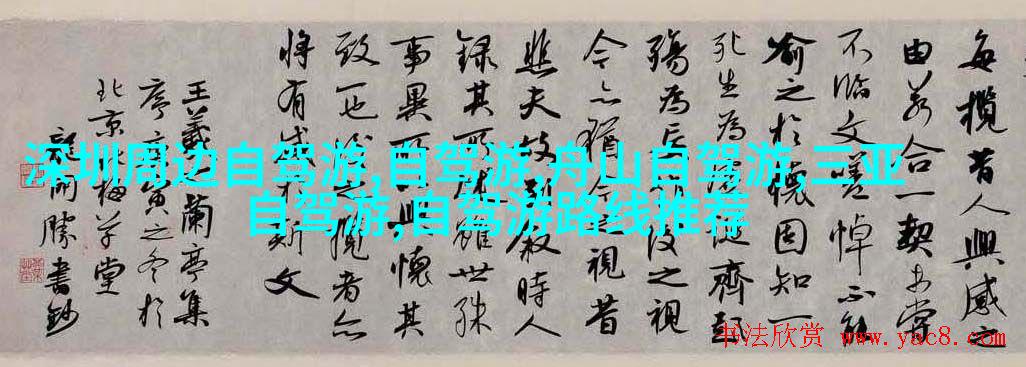 每攬昔人興感之
由若合一契未嘗
不臨文嗟悼不能
喻之於懷固知一
死生為虛誕齊彭
殤為妄作後之視
今亦猶今之視昔
悲夫故列敘時人
錄其所述雖世殊
事異所以興懷其
致一也後之攬者亦
將有感於斯文
王羲之蘭亭集
序庚寅之冬於
北京梅草堂
勝書鈔
深圳周边自驾游,自驾游,舟山自驾游,三亚
自驾游,自驾游路线推荐
书法欣赏 www.yac8.com